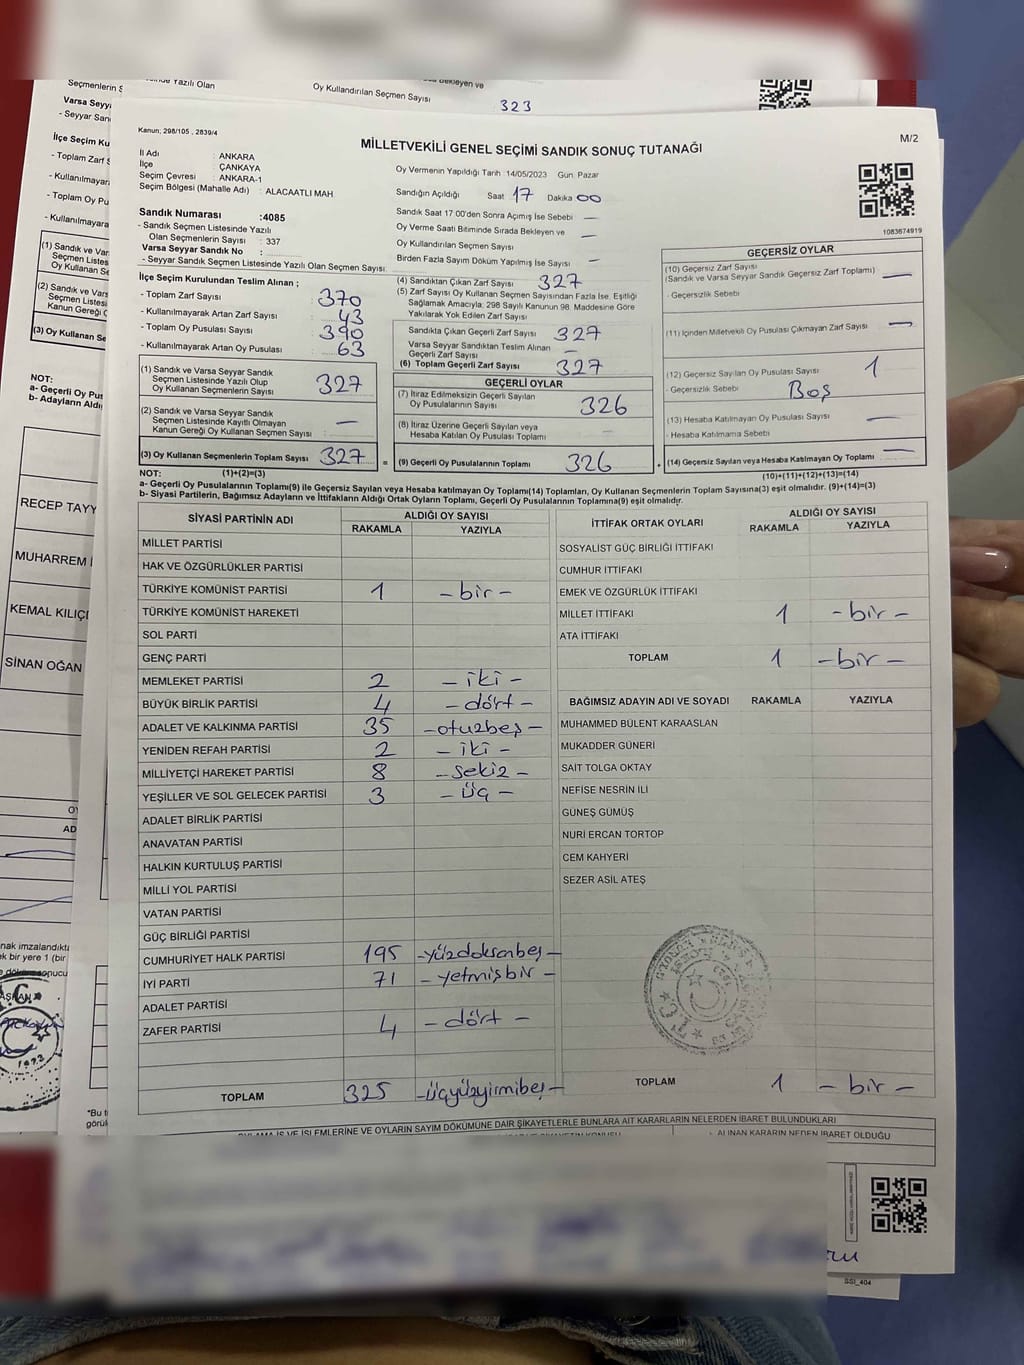 Seçmenlerin S
Yazılı Olan
Oy Kullandırılan Seçmen Sayısı
Bekleyen ve
323
Varsa Seyy
- Seyyar San
İlçe Seçim Ku
- Toplam Zarf S
- Kullanılmayar
- Toplam Oy Pu
- Kullanılmayara
(1) Sandık ve Var
Seçmen Listes
Oy Kullanan Se
(2) Sandık ve Vars
Seçmen Listesi
Kanun Gereği O
(3) Oy Kullanan Se
NOT:
a- Geçerli Oy Pus
b- Adayların Aldı
RECEP TAYY
MUHARREM İ
KEMAL KILIÇI
SİNAN OĞAN
OY
AD
nak imzalandıkta
k bir yere 1 (bir
e dökümü sonucu
"Bu t
görül
Kanun; 298/105 , 2839/4
MİLLETVEKİLİ GENEL SEÇİMİ SANDIK SONUÇ TUTANAĞI
M/2
İl Adı : ANKARA
İlçe : ÇANKAYA
Seçim Çevresi : ANKARA-1
Seçim Bölgesi (Mahalle Adı) : ALACAATLI MAH
Sandık Numarası :4085
- Sandık Seçmen Listesinde Yazılı
Olan Seçmenlerin Sayısı : 337
Varsa Seyyar Sandık No :
- Seyyar Sandık Seçmen Listesinde Yazılı Olan Seçmen Sayısı:
Oy Vermenin Yapıldığı Tarih: 14/05/2023 Gün: Pazar
Sandığın Açıldığı Saat 17 Dakika 00
Sandık Saat 17 00'den Sonra Açılmış İse Sebebi —
Oy Verme Saati Bitiminde Sırada Bekleyen ve
Oy Kullandırılan Seçmen Sayısı —
Birden Fazla Sayım Döküm Yapılmış İse Sayısı —
1083674919
İlçe Seçim Kurulundan Teslim Alınan ;
- Toplam Zarf Sayısı : 370
- Kullanılmayarak Artan Zarf Sayısı : 43
- Toplam Oy Pusulası Sayısı : 390
- Kullanılmayarak Artan Oy Pusulası : 63
(1) Sandık ve Varsa Seyyar Sandık
Seçmen Listesinde Yazılı Olup
Oy Kullanan Seçmenlerin Sayısı : 327
(2) Sandık ve Varsa Seyyar Sandık
Seçmen Listesinde Kayıtlı Olmayan
Kanun Gereği Oy Kullanan Seçmen Sayısı : —
(3) Oy Kullanan Seçmenlerin Toplam Sayısı : 327 =
(4) Sandıktan Çıkan Zarf Sayısı : 327
(5) Zarf Sayısı Oy Kullanan Seçmen Sayısından Fazla İse, Eşitliği
Sağlamak Amacıyla; 298 Sayılı Kanunun 98. Maddesine Göre
Yakılarak Yok Edilen Zarf Sayısı :
Sandıkta Çıkan Geçerli Zarf Sayısı : 327
Varsa Seyyar Sandıktan Teslim Alınan
Geçerli Zarf Sayısı : —
(6) Toplam Geçerli Zarf Sayısı : 327
GEÇERLİ OYLAR
(7) İtiraz Edilmeksizin Geçerli Sayılan
Oy Pusulalarının Sayısı : 326
(8) İtiraz Üzerine Geçerli Sayılan veya
Hesaba Katılan Oy Pusulası Toplamı : —
(9) Geçerli Oy Pusulalarının Toplamı : 326 +
GEÇERSİZ OYLAR
(10) Geçersiz Zarf Sayısı
(Sandık ve Varsa Seyyar Sandık Geçersiz Zarf Toplamı) : —
- Geçersizlik Sebebi
(11) İçinden Milletvekili Oy Pusulası Çıkmayan Zarf Sayısı : —
(12) Geçersiz Sayılan Oy Pusulası Sayısı : 1
- Geçersizlik Sebebi : Boş
(13) Hesaba Katılmayan Oy Pusulası Sayısı : —
- Hesaba Katılmama Sebebi
(14) Geçersiz Sayılan veya Hesaba Katılmayan Oy Toplamı : —
NOT: (1)+(2)=(3) (10)+(11)+(12)+(13)=(14)
a- Geçerli Oy Pusulalarının Toplamı(9) ile Geçersiz Sayılan veya Hesaba katılmayan Oy Toplamı(14) Toplamları, Oy Kullanan Seçmenlerin Toplam Sayısına(3) eşit olmalıdır. (9)+(14)=(3)
b- Siyasi Partilerin, Bağımsız Adayların ve İttifakların Aldığı Ortak Oyların Toplamı, Geçerli Oy Pusulalarının Toplamına(9) eşit olmalıdır.
SİYASİ PARTİNİN ADI ALDIĞI OY SAYISI
RAKAMLA YAZIYLA
MİLLET PARTİSİ
HAK VE ÖZGÜRLÜKLER PARTİSİ
TÜRKİYE KOMÜNİST PARTİSİ 1 - bir -
TÜRKİYE KOMÜNİST HAREKETİ
SOL PARTİ
GENÇ PARTİ
MEMLEKET PARTİSİ 2 - iki -
BÜYÜK BİRLİK PARTİSİ 4 - dört -
ADALET VE KALKINMA PARTİSİ 35 - otuzbeş -
YENİDEN REFAH PARTİSİ 2 - iki -
MİLLİYETÇİ HAREKET PARTİSİ 8 - sekiz -
YEŞİLLER VE SOL GELECEK PARTİSİ 3 - üç -
ADALET BİRLİK PARTİSİ
ANAVATAN PARTİSİ
HALKIN KURTULUŞ PARTİSİ
MİLLİ YOL PARTİSİ
VATAN PARTİSİ
GÜÇ BİRLİĞİ PARTİSİ
CUMHURİYET HALK PARTİSİ 195 - yüzdoksanbeş -
İYİ PARTİ 71 - yetmişbir -
ADALET PARTİSİ
ZAFER PARTİSİ 4 - dört -
TOPLAM 325 - üçyüzyirmibeş -
İTTİFAK ORTAK OYLARI ALDIĞI OY SAYISI
RAKAMLA YAZIYLA
SOSYALİST GÜÇ BİRLİĞİ İTTİFAKI
CUMHUR İTTİFAKI
EMEK VE ÖZGÜRLÜK İTTİFAKI
MİLLET İTTİFAKI 1 - bir -
ATA İTTİFAKI
TOPLAM 1 - bir -
BAĞIMSIZ ADAYIN ADI VE SOYADI RAKAMLA YAZIYLA
MUHAMMED BÜLENT KARAASLAN
MUKADDER GÜNERİ
SAİT TOLGA OKTAY
NEFİSE NESRİN İLİ
GÜNEŞ GÜMÜŞ
NURİ ERCAN TORTOP
CEM KAHYERİ
SEZER ASİL ATEŞ
TOPLAM 1 - bir -
İŞ VE İŞLEMLERİNE VE OYLARIN SAYIM DÖKÜMÜNE DAİR ŞİKAYETLERLE BUNLARA AİT KARARLARIN NELERDEN İBARET BULUNDUKLARI
ALINAN KARARIN NEDEN İBARET OLDUĞU
SSİ_404